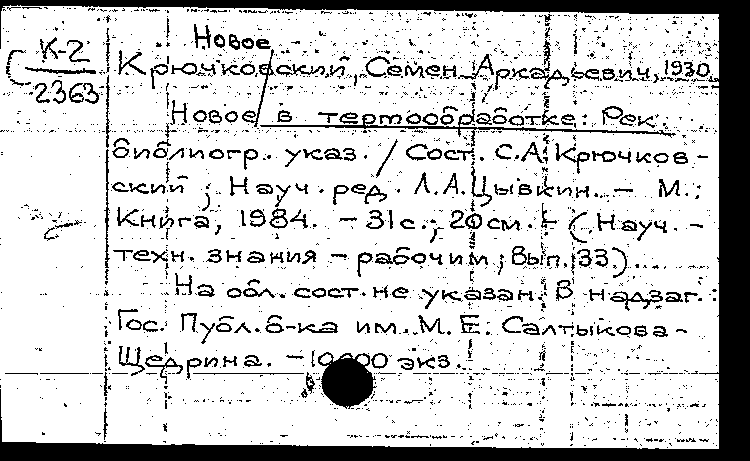 Новое
К-2
2363
Крючковский, Семен Аркадьевич, 1930
Новое в термообработке: Рек.
библиогр. указ. / Сост. С.А. Крючков-
ский; Науч. ред. Л.А. Цывкин. - М.:
Книга, 1984. - 31 с.; 20 см. - (Науч. -
техн. знания - рабочим; Вып. 33).
На обл. сост. не указан. В надзаг.:
Гос. Публ. б-ка им. М. Е. Салтыкова-
Щедрина. - 10000 экз.